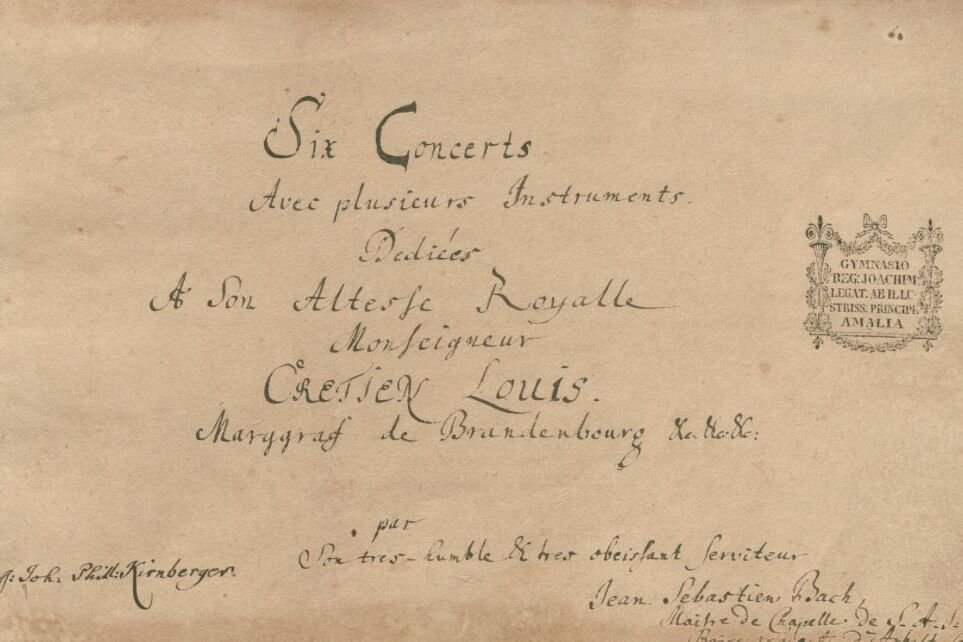 Six Concerts
Avec plusieurs Instruments.
Dediées
A Son Altesse Royalle
Monseigneur
CRETIEN Louis.
Marggraf de Brandenbourg &c. &c. &c:
par
Son tres-humble & tres obeissant serviteur
Jean Sebastien Bach,
Maitre de Chapelle de S. A. S.
Joh. Phill: Kirnberger.
GYMNASIO
REG: JOACHIM:
LEGAT. AB ILLU-
STRISS. PRINCIPE
AMALIA